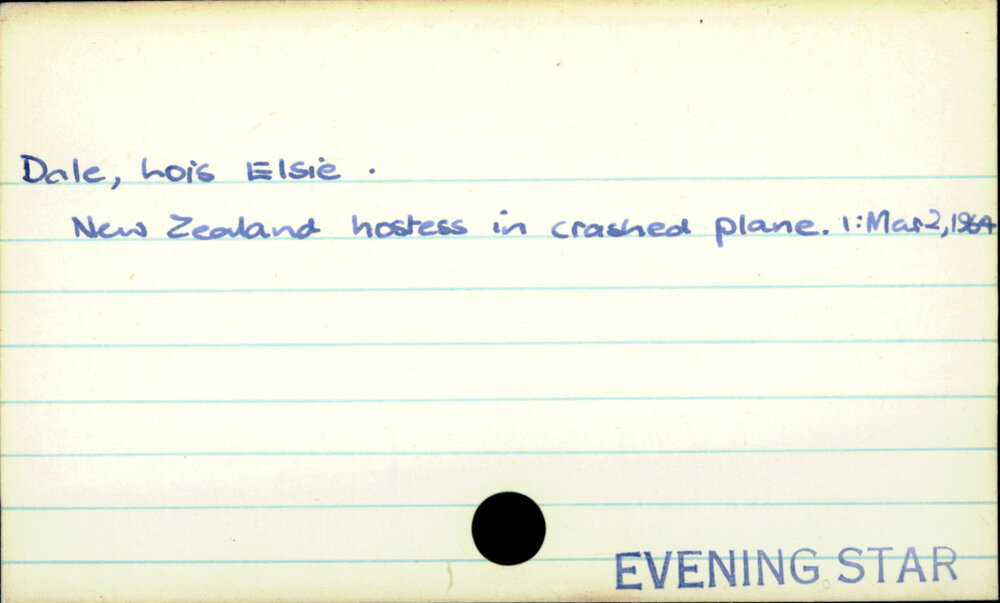 Dale, Lois Elsie.
New Zealand hostess in crashed plane. 1:Mar2,1964
EVENING STAR